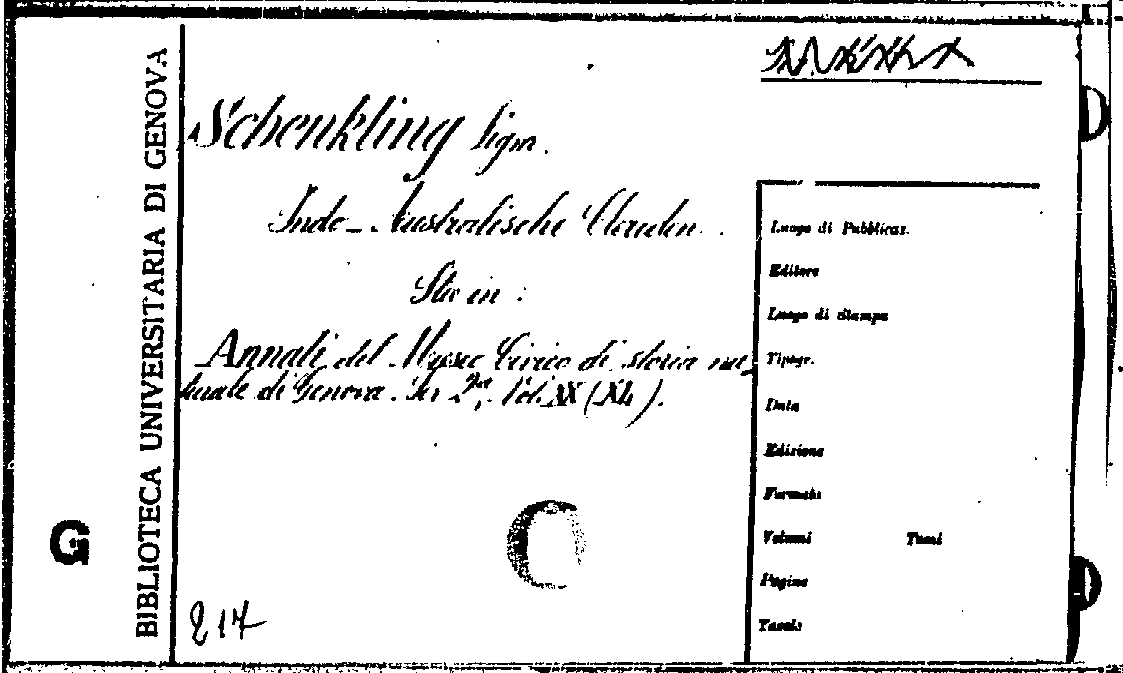 BIBLIOTECA UNIVERSITARIA DI GENOVA
G
Schenkling Sigm.
Indo-Australische Cleriden.
Sta in:
Annali del Museo Civico di storia na-
turale di Genova. Ser 2a. Vol. XX (XL).
217
Luogo di Pubblicaz.
Editore
Luogo di stampa
Tipogr.
Data
Edizione
Formato
Volumi Tomi
Pagine
Tavole